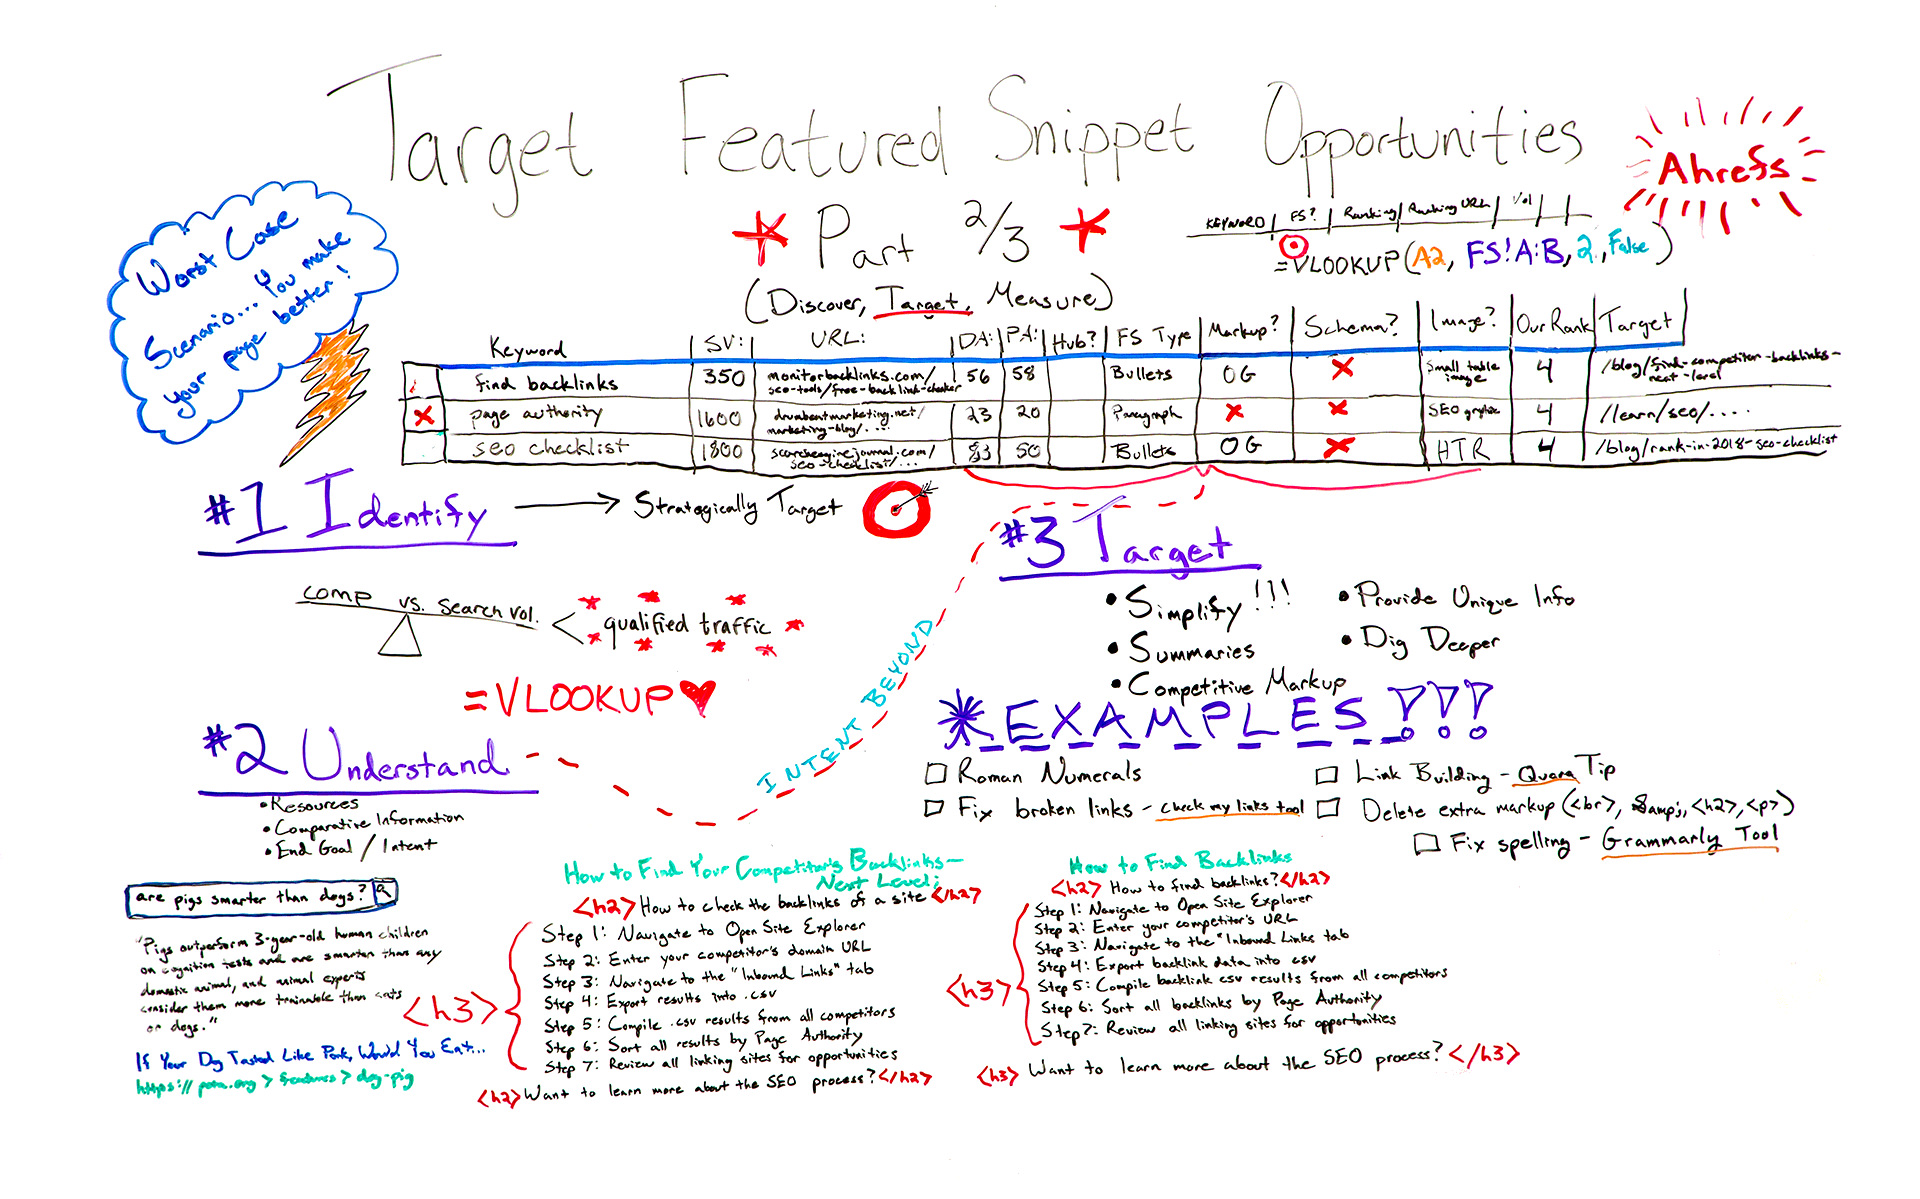 Target Featured Snippet Opportunities
Ahrefs
* Part 2/3 *
(Discover, Target, Measure)
Worst Case
Scenario... You make
your page better!
KEYWORD | FS? | Ranking | Ranking URL | Vol
=VLOOKUP(A2, FS!A:B, 2, False)
Keyword | SV: | URL: | DA: | PA: | Hub? | FS Type | Markup? | Schema? | Image? | Our Rank | Target
find backlinks | 350 | monitorbacklinks.com/ seo-tools/free-backlink-checker | 56 | 58 | Bullets | OG | X | Small table image | 4 | /blog/find-competitor-backlinks-next-level
X | page authority | 1600 | marketing-blog/.... | 23 | 20 | Paragraph | X | X | SEO | 4 | /learn/seo/....
seo checklist | 1800 | searchenginejournal.com/ seo-checklist/... | 50 | Bullets | OG | X | HTR | 4 | /blog/rank-in-2018-seo-checklist
#1 Identify → Strategically Target
comp vs. search vol. < qualified traffic
=VLOOKUP♥
#2 Understand
• Resources
• Comparative Information
• End Goal / Intent
INTENT BEYOND
#3 Target
• Simplify!!!
• Summaries
• Competitive Markup
• Provide Unique Info
• Dig Deeper
*EXAMPLES!!!
Roman Numerals
Fix broken links - check my links tool
Link Building - Quora Tip
Delete extra markup (<br>, &amp;, <h2>, <p>)
Fix spelling - Grammarly Tool
are pigs smarter than dogs?
"Pigs outperform 3-year-old human children
on cognition tests and are smarter than any
domestic animal, and animal experts
consider them more trainable than cats
or dogs."
If Your Dog Tasted Like Pork, Would You Eat...
https://peta.org > features > dog-pig
How to Find Your Competitor's Backlinks-
Next Level:
<h2> How to check the backlinks of a site </h2>
<h3>
Step 1: Navigate to Open Site Explorer
Step 2: Enter your competitor's domain URL
Step 3: Navigate to the "Inbound Links" tab
Step 4: Export results into .csv
Step 5: Compile .csv results from all competitors
Step 6: Sort all results by Page Authority
Step 7: Review all linking sites for opportunities
<h2> Want to learn more about the SEO process? </h2>
How to Find Backlinks
<h2> How to find backlinks? </h2>
<h3>
Step 1: Navigate to Open Site Explorer
Step 2: Enter your competitor's URL
Step 3: Navigate to the "Inbound Links tab
Step 4: Export backlink data into csv
Step 5: Compile backlink csv results from all competitors
Step 6: Sort all backlinks by Page Authority
Step 7: Review all linking sites for opportunities
<h3> Want to learn more about the SEO process? </h3>